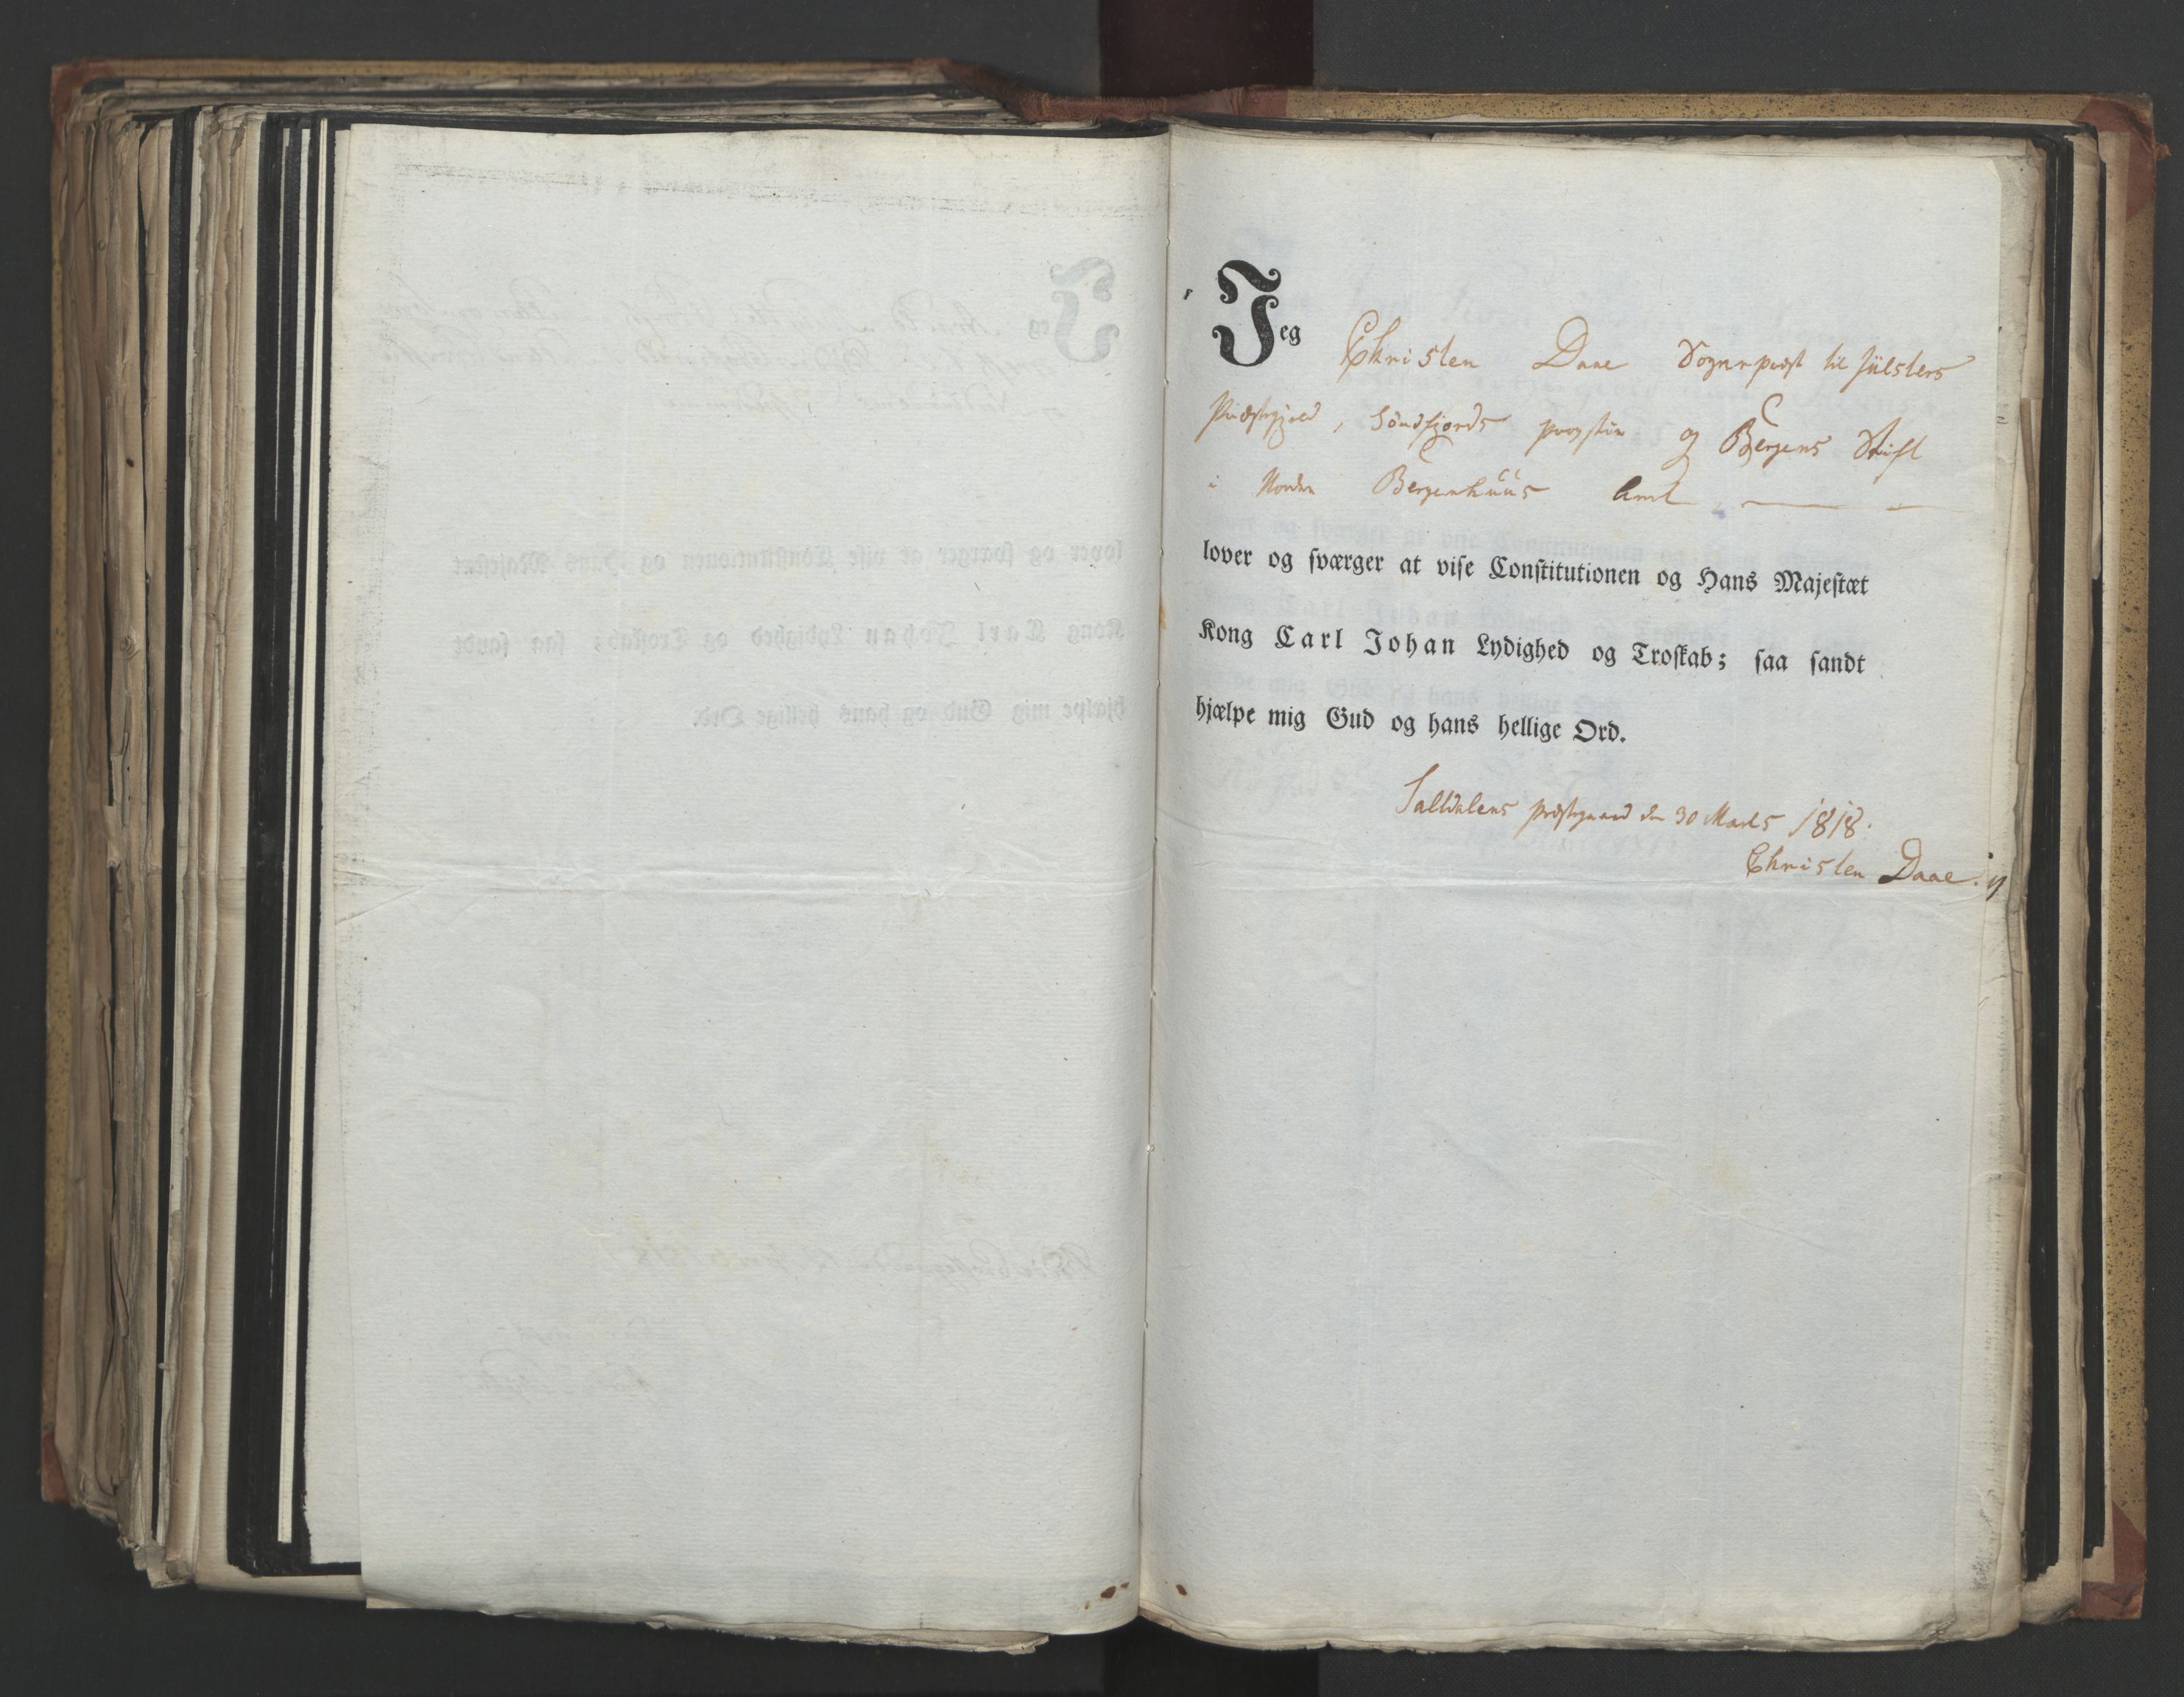 Jeg Christen Daae Sognepræst til Jülsters
Præstegjeld, Söndfjords provstie og Bergens Stift
i Nordre Bergenhüüs Amt
lover og sværger at vise Constitutionen og Hans Majestæt
Kong Carl Johan Lydighed og Troskab; saa sandt
hjælpe mig Gud og hans hellige Ord.
Saltdalens præstegaard den 30 Marts 1818.
Christen Daae.